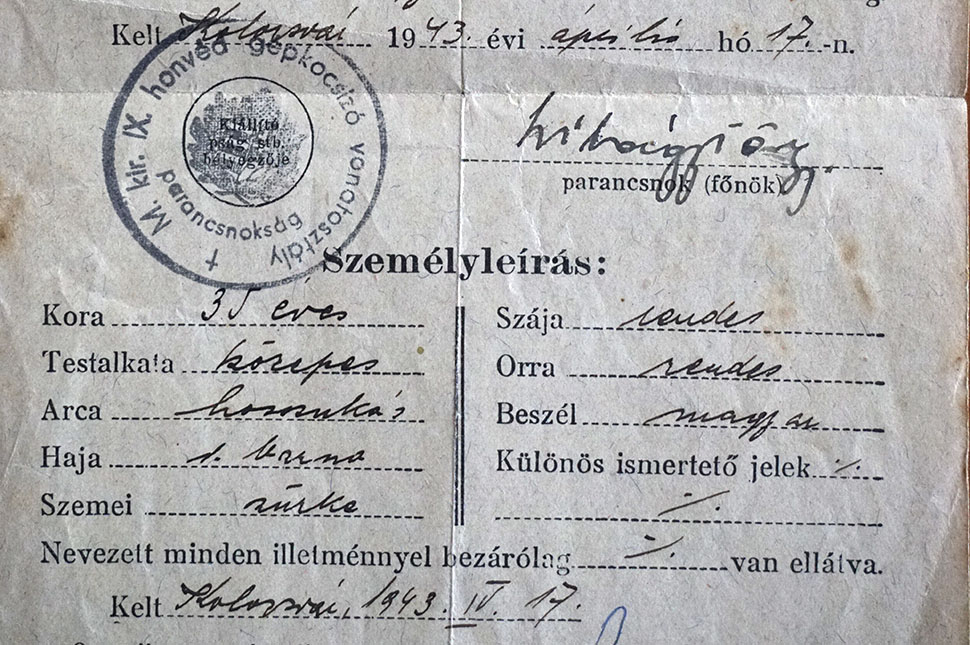 Kelt Kolozsvár 1943. évi április hó 17.-n.
M. kir. IX. honvéd gépkocsizó vonatosztály
parancsnokság
Kiállító
pság stb.
bélyegzője
parancsnok (főnök)
Személyleírás:
Kora 35 éves
Szája rendes
Testalkata közepes
Orra rendes
Arca hosszukás
Beszél magyar
Haja s. barna
Különös ismertető jelek ·/.
Szemei szürke
·/.
Nevezett minden illetménnyel bezárólag ·/. van ellátva.
Kelt Kolozsvár, 1943. IV. 17.